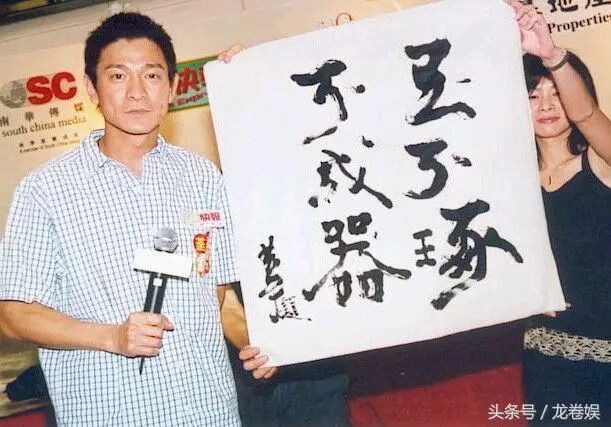 SC
南華傳媒
south china media
快報
地產
Properties
玉不琢
不成器
快報
头条号 / 龙卷娱